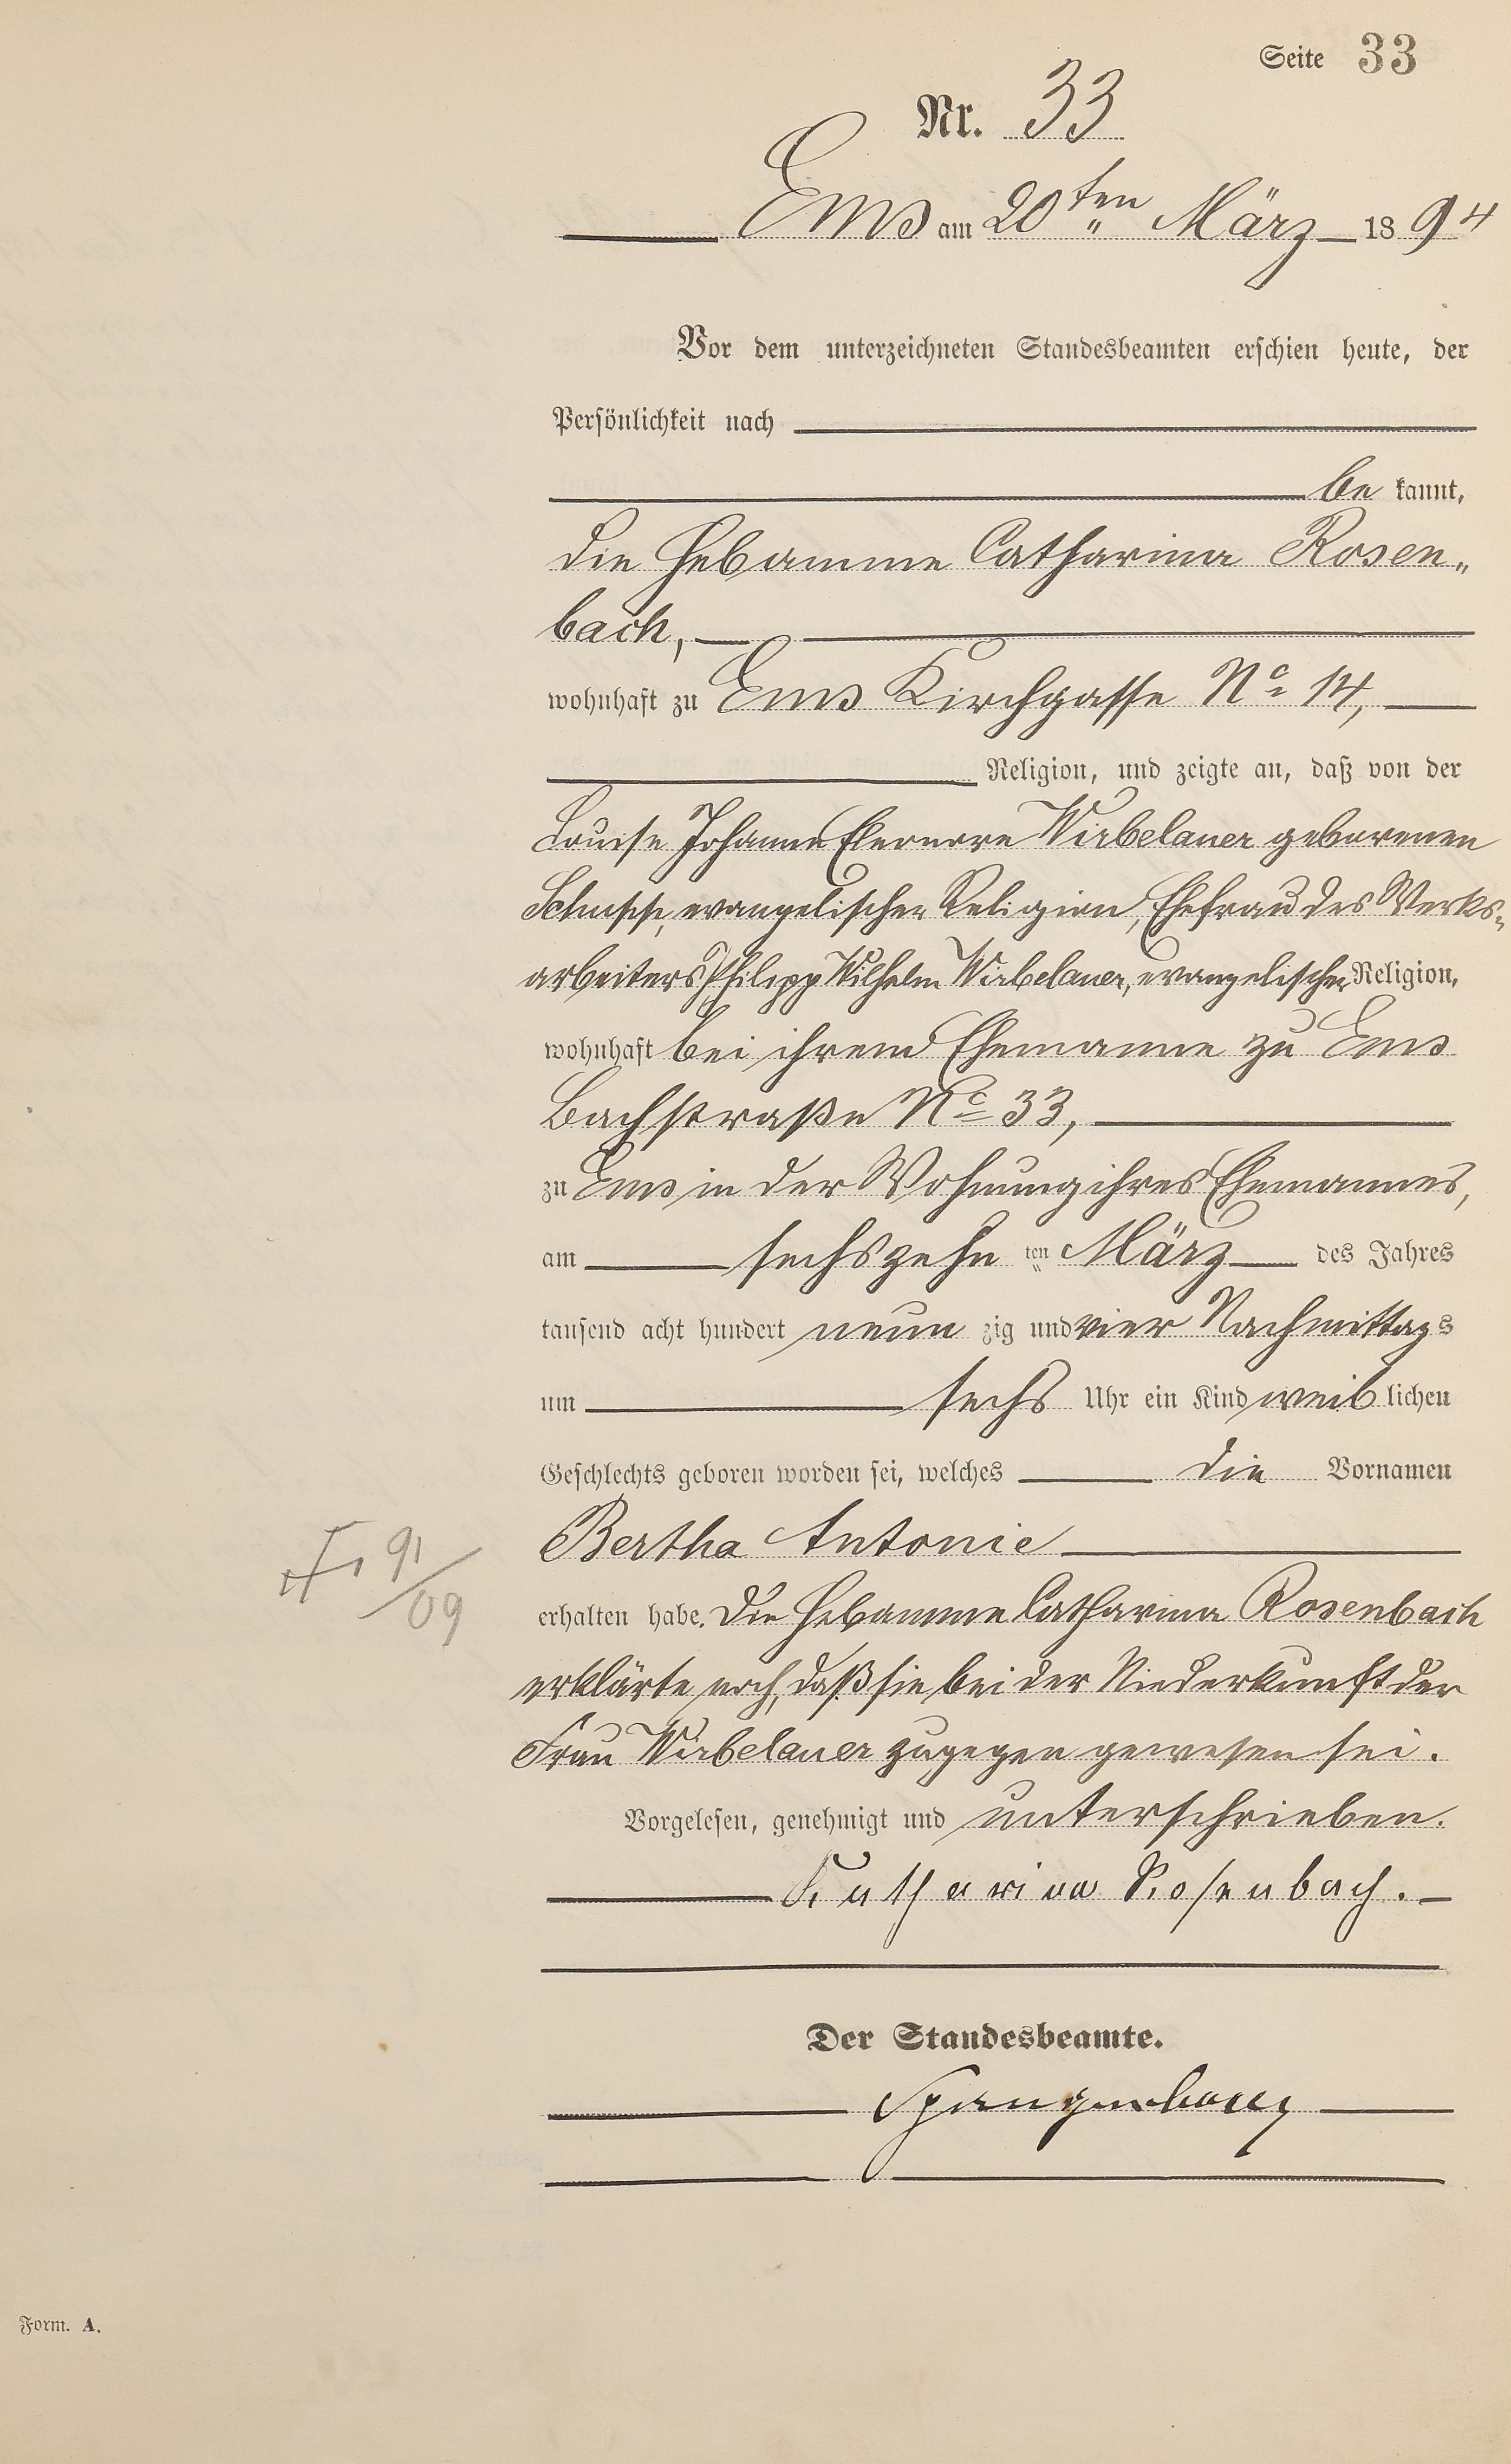 Seite 33
Nr. 33
Ems am 20ten März 1894
Vor dem unterzeichneten Standesbeamten erschien heute, der
Persönlichkeit nach
be kannt,
die Hebamme Catharina Rosen„
bach,
wohnhaft zu Ems Kirchgasse No 14,
Religion, und zeigte an, daß von der
Louise Johanna Eleonore Wirbelauer geborenen
evangelischer Religion, Ehefrau des Werks„
arbeiters Philipp Wilhelm Wirbelauer, evangelischer Religion,
wohnhaft bei ihrem Ehemanne zu Ems
Bachstraße No 33,
zu Ems in der Wohnung ihres Ehemannes,
am sechszehn ten März des Jahres
tausend acht hundert neun zig und vier Nachmittags
um sechs Uhr ein Kind weib lichen
Geschlechts geboren worden sei, welches die Vornamen
Bertha Antonie
91/09
erhalten habe. Die Hebamme Catharina Rosenbach
erklärte noch, daß sie bei der Niederkunft der
Frau Wirbelauer zugegen gewesen sei.
Vorgelesen, genehmigt und unterschrieben.
Katharina Rosenbach.
Der Standesbeamte.
Spangenberg
Form. A.